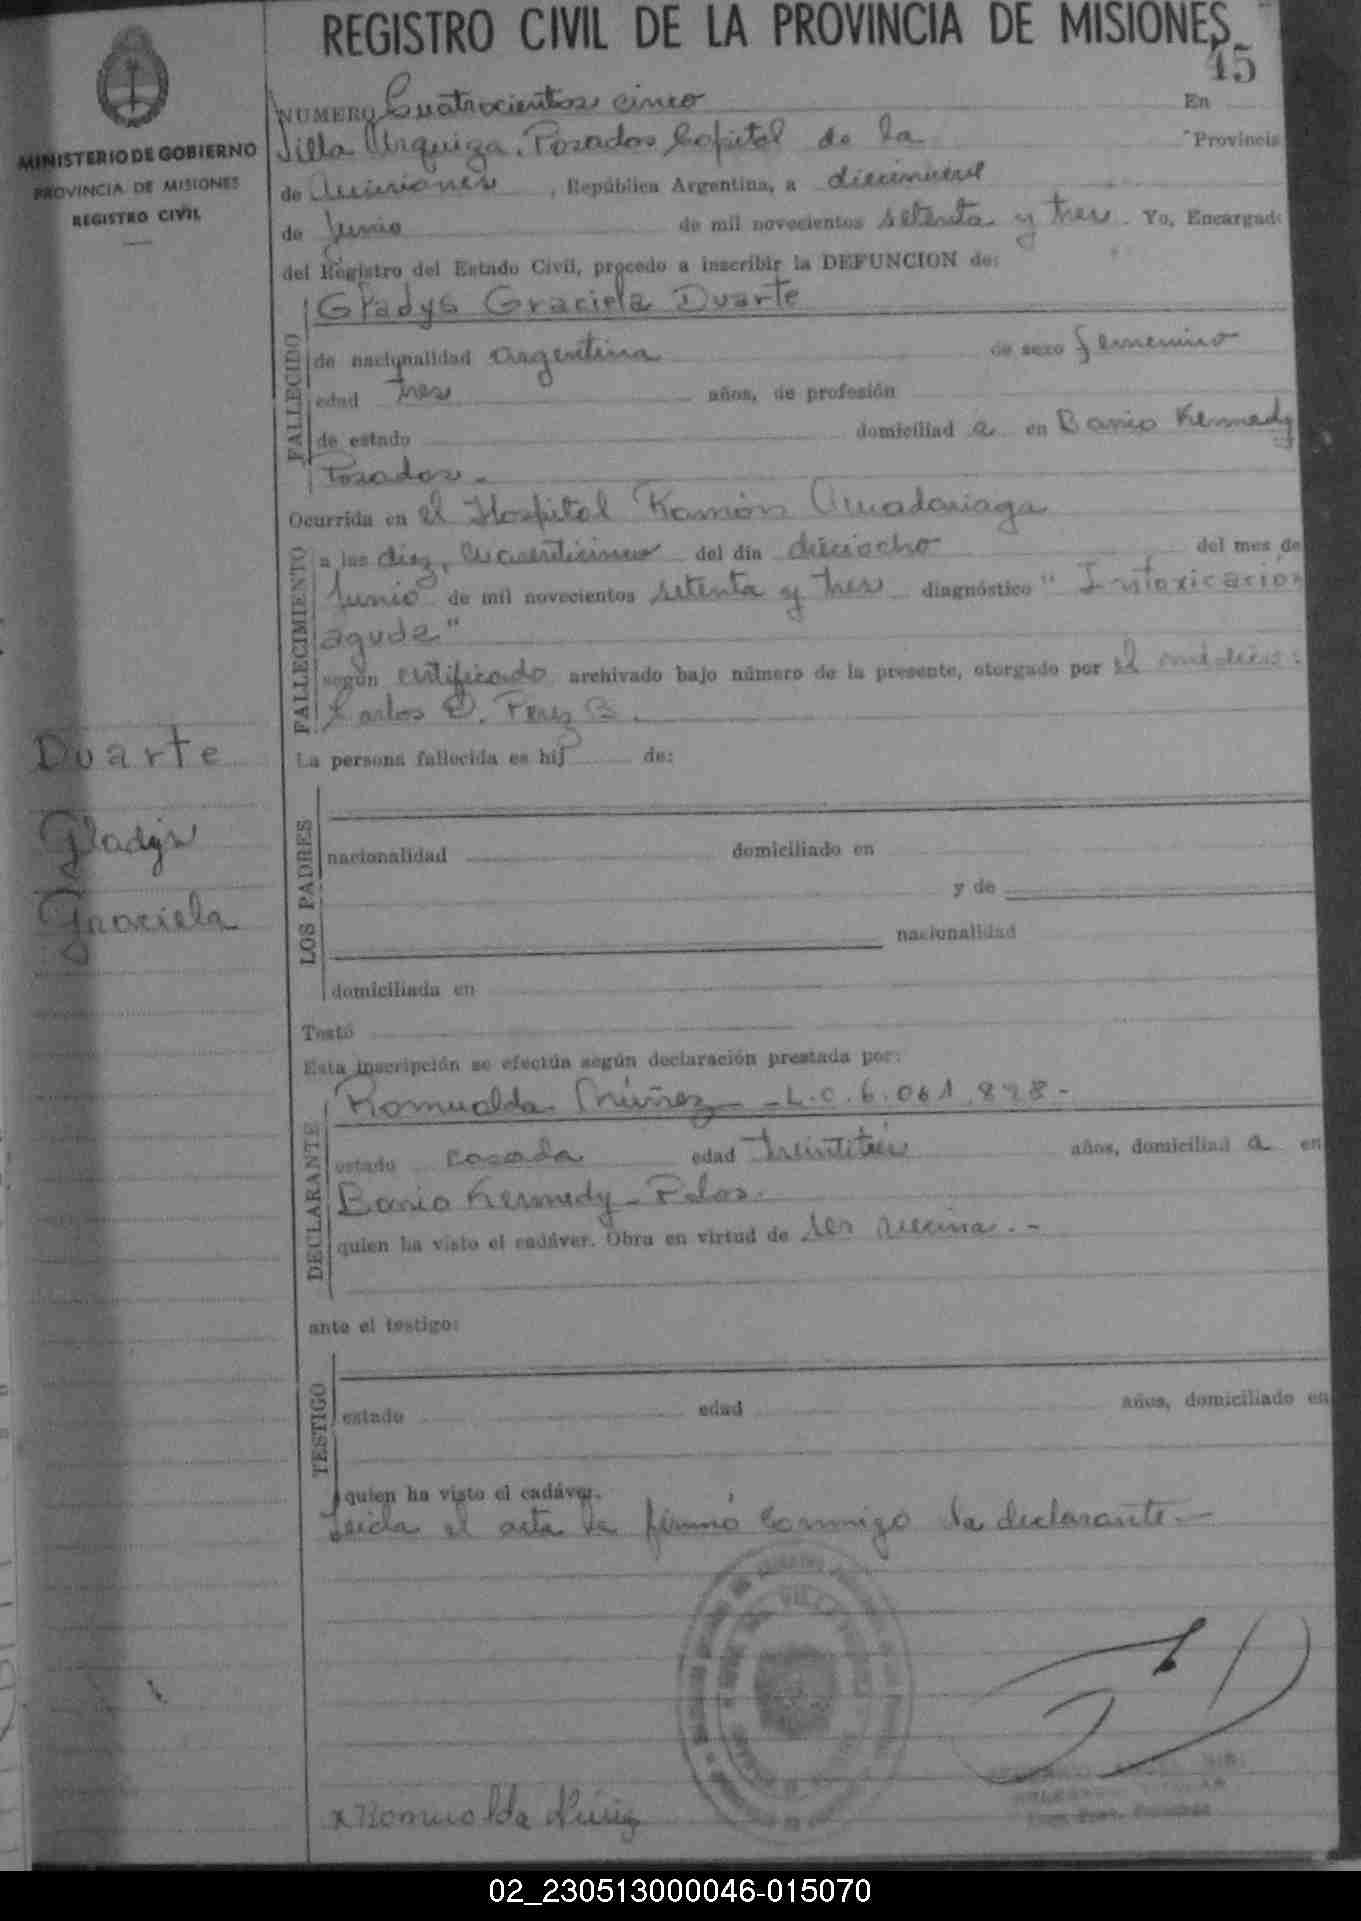 REGISTRO CIVIL DE LA PROVINCIA DE MISIONES
45
MINISTERIO DE GOBIERNO
PROVINCIA DE MISIONES
REGISTRO CIVIL
NUMERO Cuatrocientos cinco En
Villa Urquiza, Posadas Capital de la Provincia
de Misiones, República Argentina, a diecinueve
de Junio de mil novecientos setenta y tres. Yo, Encargado
del Registro del Estado Civil, procedo a inscribir la DEFUNCION de:
FALLECIDO
Gladys Graciela Duarte
de nacionalidad argentina de sexo femenino
edad tres años, de profesión
de estado domiciliad a en Barrio Kennedy
Posadas.
Ocurrida en el Hospital Ramón Madariaga
FALLECIMIENTO
a las diez, cuarenticinco del día dieciocho del mes de
Junio de mil novecientos setenta y tres diagnóstico "Intoxicación
aguda"
según certificado archivado bajo número de la presente, otorgado por el médico:
Carlos D. Perez B.
Duarte
Gladys
Graciela
La persona fallecida es hij de:
LOS PADRES
nacionalidad domiciliado en
y de
nacionalidad
domiciliada en
Testó
Esta inscripción se efectúa según declaración prestada por:
DECLARANTE
Romualda Núñez - L.C. 6.061.828-
estado casada edad treintitrés años, domiciliad a en
Barrio Kennedy - Pdas.
quien ha visto el cadáver. Obra en virtud de ser vecina.-
ante el testigo:
TESTIGO
estado edad años, domiciliado en
quien ha visto el cadáver.
Leida el acta la firmó conmigo la declarante.-
x Romualda Núñez
02_230513000046-015070